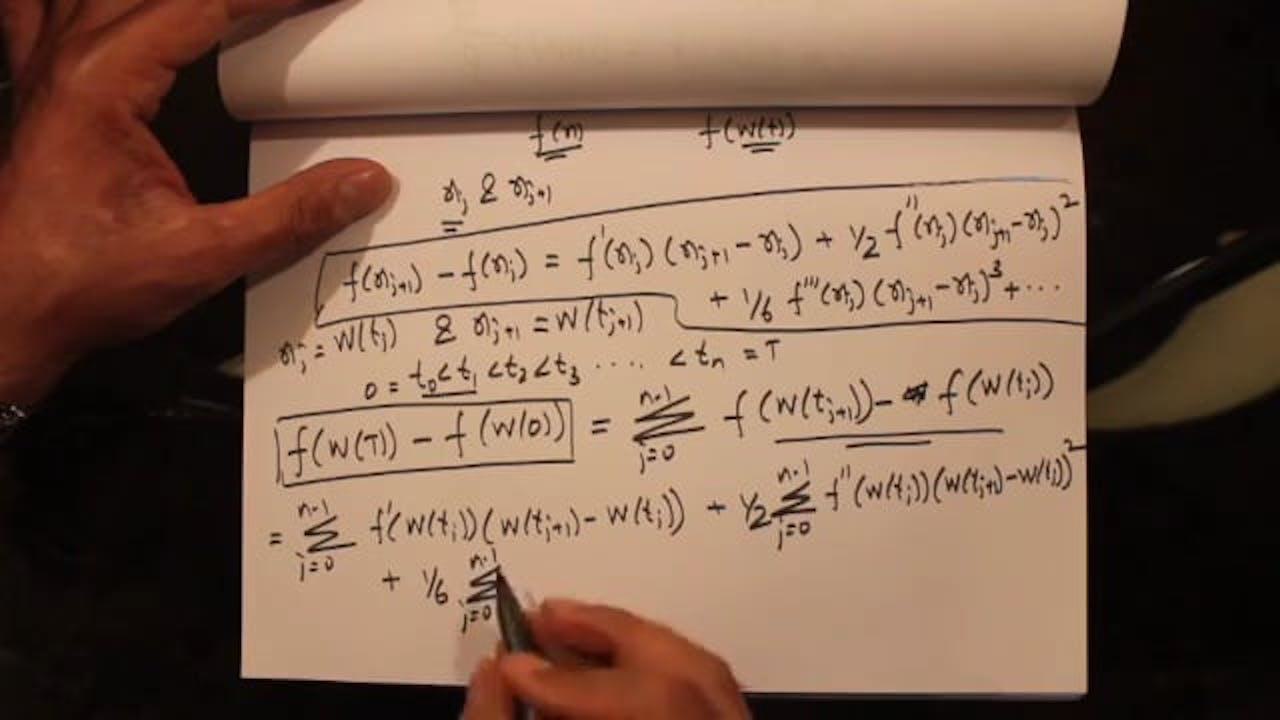 f(x) f(W(t))
xⱼ & xⱼ₊₁
f(xⱼ₊₁) - f(xⱼ) = f'(xⱼ)(xⱼ₊₁ - xⱼ) + 1/2 f''(xⱼ)(xⱼ₊₁ - xⱼ)²
+ 1/6 f'''(xⱼ)(xⱼ₊₁ - xⱼ)³ + ...
xⱼ = W(tⱼ) & xⱼ₊₁ = W(tⱼ₊₁)
0 = t₀ < t₁ < t₂ < t₃ .... < tₙ = T
f(W(T)) - f(W(0)) = Σⱼ₌₀ⁿ⁻¹ f(W(tⱼ₊₁)) - f(W(tⱼ))
= Σⱼ₌₀ⁿ⁻¹ f'(W(tⱼ))(W(tⱼ₊₁) - W(tⱼ)) + 1/2 Σⱼ₌₀ⁿ⁻¹ f''(W(tⱼ))(W(tⱼ₊₁) - W(tⱼ))²
+ 1/6 Σⱼ₌₀ⁿ⁻¹